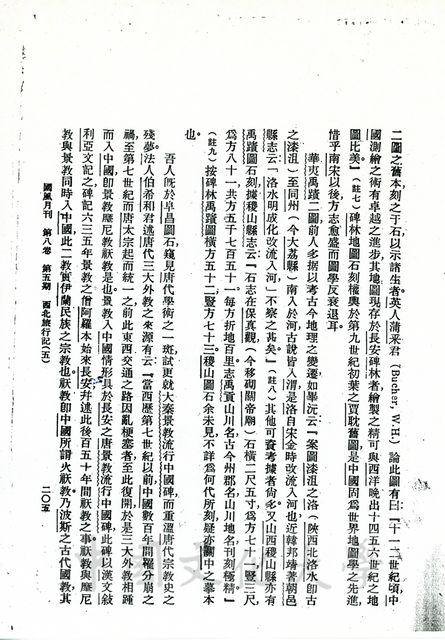 二圖之舊本刻之于石以示諸生者英人蒲釆君(Bucher, W.H.)論此圖有曰「十一十二世紀頃中
國測繪之術有卓越之進步其地圖現存於長安碑林者繪製之精可與西洋晚出十四五六世紀之地
圖比美。」(註七)碑林地圖石刻權輿於第九世紀初葉之賈耽舊圖是中國固爲世界地圖學之先進
惜乎南宋以後方志愈盛而圖學反衰退耳。
華夷禹蹟二圖前人多據以考古今地理之變遷如畢沅云「案圖漆沮之洛(陝西北洛水卽古
之漆沮)至同州(今大荔縣)南入於河古說皆入渭是洛自宋金時改流入河也近韓邦靖著朝邑
縣志云「洛水明成化改流入河」不察之甚矣。」(註八)其他可資考據者尙多又山西稷山縣亦有
禹蹟圖石刻據稷山縣志云「石志在保真觀(今移砌關帝廟)石橫二尺五寸爲方七十豎三尺
爲方八十一共方五千七百五十一每方折地百里志禹貢山川名古今州郡名山川地名刊刻極精」
(註九)按碑林禹蹟圖橫方五十二豎方七十三。稷山圖石余未見不詳爲何代所刻疑亦關中之摹本
也。
吾人旣於阜昌圖石窺見唐代學術之一斑試更就大秦景教流行中國碑而重溫唐代宗教史之
殘夢法人伯希和君述唐代三大外教之來源有云「當西歷第七世紀以前中國數百年間罹分崩之
禍至第七世紀而唐太宗起而統一之前此東西交通之路因亂梗塞者至此復開於是三大外教相踵
而入中國卽景教摩尼教祆教是也景教入中國情形具於長安之唐景教流行中國碑此碑以漢文敍
利亞文記之碑記六三五年景教之僧阿羅本始來長安幷述此後百五十年間祆教之事祆教與摩尼
教與景教同時入中國此二教實伊蘭民族之宗教也。祆教卽中國所謂火祆教乃波斯之古代國教其
國風月刊 第八卷 第五期 西北旅行記(五) 二〇五